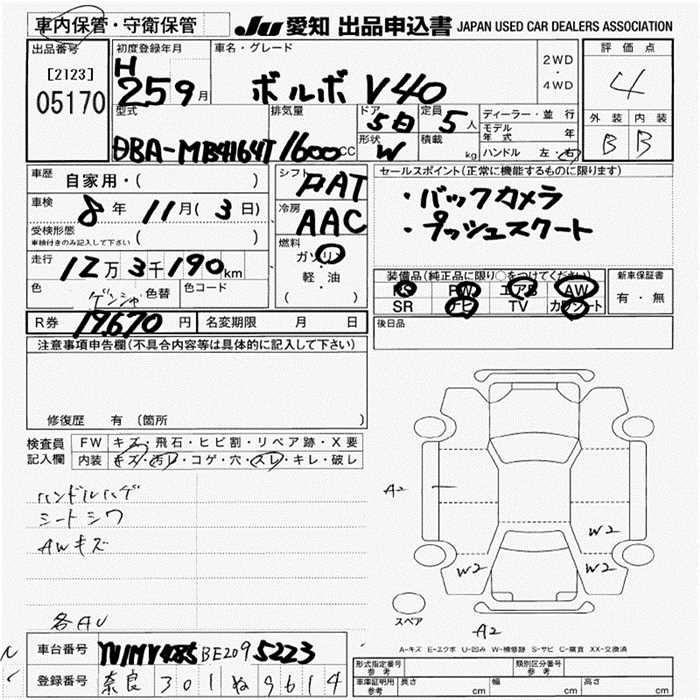 車内保管・守衛保管
JU 愛知 出品申込書 JAPAN USED CAR DEALERS ASSOCIATION
出品番号
[2123]
05170
初度登録年月
H 25 9月
車名・グレード
ボルボ V40
2WD・4WD
評価点
4
外装 内装
B B
型式
DBA-MB4164T
排気量
1600cc
ドア 5日
定員 5人
形状 W
積載 kg
ディーラー・並行
モデル年式 年
ハンドル 左・右
車歴 自家用・( )
車検 8年11月(3日)
受検形態 ( )
車検付きのみ記入して下さい
走行 12万3千190km
色 色替 色コード
シフト
冷房 AAC
燃料
ガソリン
軽・油
( )
R券 17,670円 名変期限 月 日
セールスポイント(正常に機能するものに限ります)
・バックカメラ
・プッシュスタート
装備品(純正品に限り○をつけてください)
PS PW エアB AW
SR ナビ TV カワシート
新車保証書
有・無
後日品
注意事項申告欄(不具合内容等は具体的に記入して下さい)
修復歴 有 (箇所 )
検査員記入欄
FW キズ・飛石・ヒビ割・リペア跡・X要
内装 キズ・汚レ・コゲ・穴・スレ・キレ・破レ
ハンドルハゲ
シートシワ
AWキズ
各AU
A2
W2
W2
W2
A2
スペア
A-キズ E-エクボ U-凹み W-補修跡 S-サビ C-腐食 XX-交換済
車台番号 YV1MV485BE2095223
登録番号 奈良301ぬ9614
形式指定番号 参考
類別区分番号 参考
車庫証明用 参考
長さ cm 幅 cm 高さ cm